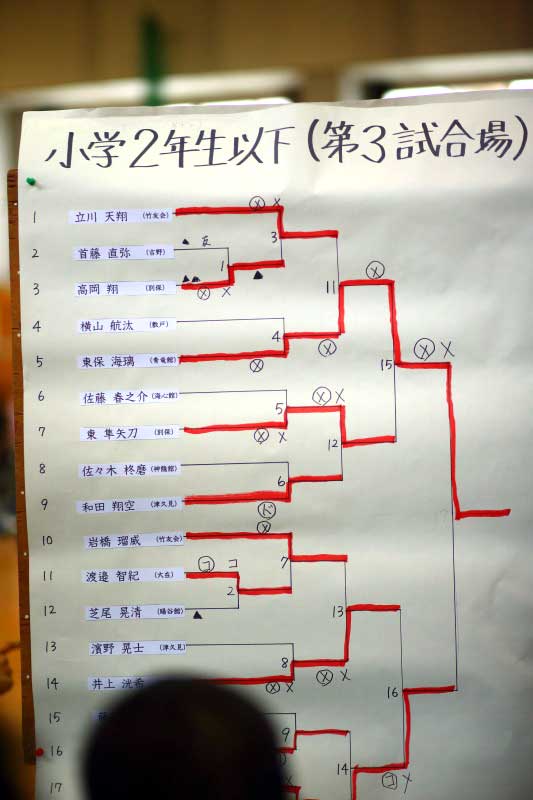 小学2年生以下(第3試合場)
1 立川 天翔 (竹友会)
2 首藤 直弥 (吉野)
3 高岡 翔 (別保)
4 横山 航汰 (敷戸)
5 東保 海璃 (青竜館)
6 佐藤 春之介 (海心館)
7 東 隼矢刀 (別保)
8 佐々木 柊磨 (神龍館)
9 和田 翔空 (津久見)
10 岩橋 瑠威 (竹友会)
11 渡邉 智紀 (大在)
12 芝尾 晃清 (陽谷館)
13 濱野 晃士 (津久見)
14 井上 洸希
15
16
17
メ メ
3
反
1
メ メ
11
メ
4
メ
メ
15
メ メ
5
メ メ
メ メ
12
6
ド
メ
7
コ コ
2
13
8
メ メ
メ メ
16
9
14
コ メ